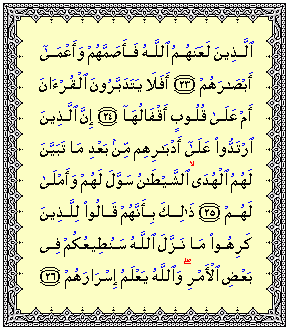 ٱلَّذِينَ لَعَنَهُمُ ٱللَّهُ فَأَصَمَّهُمْ وَأَعْمَىٰٓ
أَبْصَٰرَهُمْ ﴿٢٣﴾ أَفَلَا يَتَدَبَّرُونَ ٱلْقُرْءَانَ
أَمْ عَلَىٰ قُلُوبٍ أَقْفَالُهَآ ﴿٢٤﴾ إِنَّ ٱلَّذِينَ
ٱرْتَدُّوا۟ عَلَىٰٓ أَدْبَٰرِهِم مِّنۢ بَعْدِ مَا تَبَيَّنَ
لَهُمُ ٱلْهُدَى ۙ ٱلشَّيْطَٰنُ سَوَّلَ لَهُمْ وَأَمْلَىٰ
لَهُمْ ﴿٢٥﴾ ذَٰلِكَ بِأَنَّهُمْ قَالُوا۟ لِلَّذِينَ
كَرِهُوا۟ مَا نَزَّلَ ٱللَّهُ سَنُطِيعُكُمْ فِى
بَعْضِ ٱلْأَمْرِ ۖ وَٱللَّهُ يَعْلَمُ إِسْرَارَهُمْ ﴿٢٦﴾